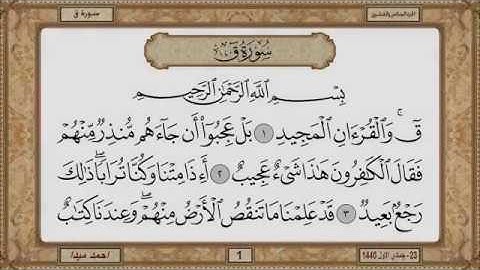 الجزء السادس والعشرون
سورة ق
سُورَةُ ق
بِسْمِ اللَّهِ الرَّحْمَٰنِ الرَّحِيمِ
قٓۚ وَالْقُرْءَانِ الْمَجِيدِ ١ بَلْ عَجِبُوٓا۟ أَن جَآءَهُم مُّنذِرٌ مِّنْهُمْ
فَقَالَ الْكَٰفِرُونَ هَٰذَا شَىْءٌ عَجِيبٌ ٢ أَءِذَا مِتْنَا وَكُنَّا تُرَابًاۖ ذَٰلِكَ
رَجْعٌۢ بَعِيدٌ ٣ قَدْ عَلِمْنَا مَا تَنقُصُ الْأَرْضُ مِنْهُمْۖ وَعِندَنَا كِتَٰبٌ
23- جمادى الأول 1440
1